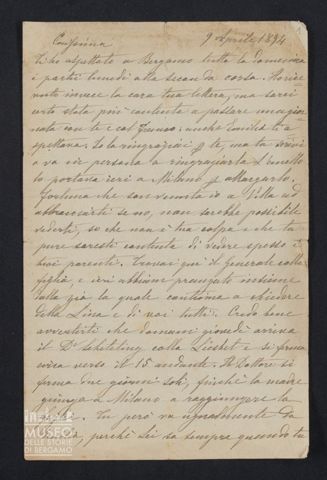 9 Aprile 1894
Ti ho aspettato a Bergamo tutta la domenica
e partii lunedì alla seconda corsa.
invece la cara tua lettera, ma sarei
certo stata più contenta a passare una gior
nata con te e col Franco: anche ti a
spettava. Io la ringraziai p te, ma tu scrivi
a va in persona a ringraziarla
portava ieri a Milano p
fortuna che son venuta io a Villa ad
abbracciarti se no, non sarebbe possibile
vederti, so che non è tua colpa e che tu
pure saresti contenta di vedere spesso i
tuoi parenti. Trovai qui il Generale colla
figlia, e ieri abbiamo pranzato insieme
dalla zia la quale continua a chiedere
della Lina e di voi tutti. Credo bene
avvertirti che domani giovedì arriva
il Dr colla e si ferma
circa verso il 15 andante. Il Dottore si
ferma due giorni soli, finchè la madre
giunga a Milano a raggiungere la
figlia. Tu però va
perchè lei sa sempre quando tu
MUSEO
DELLE STORIE
DI BERGAMO